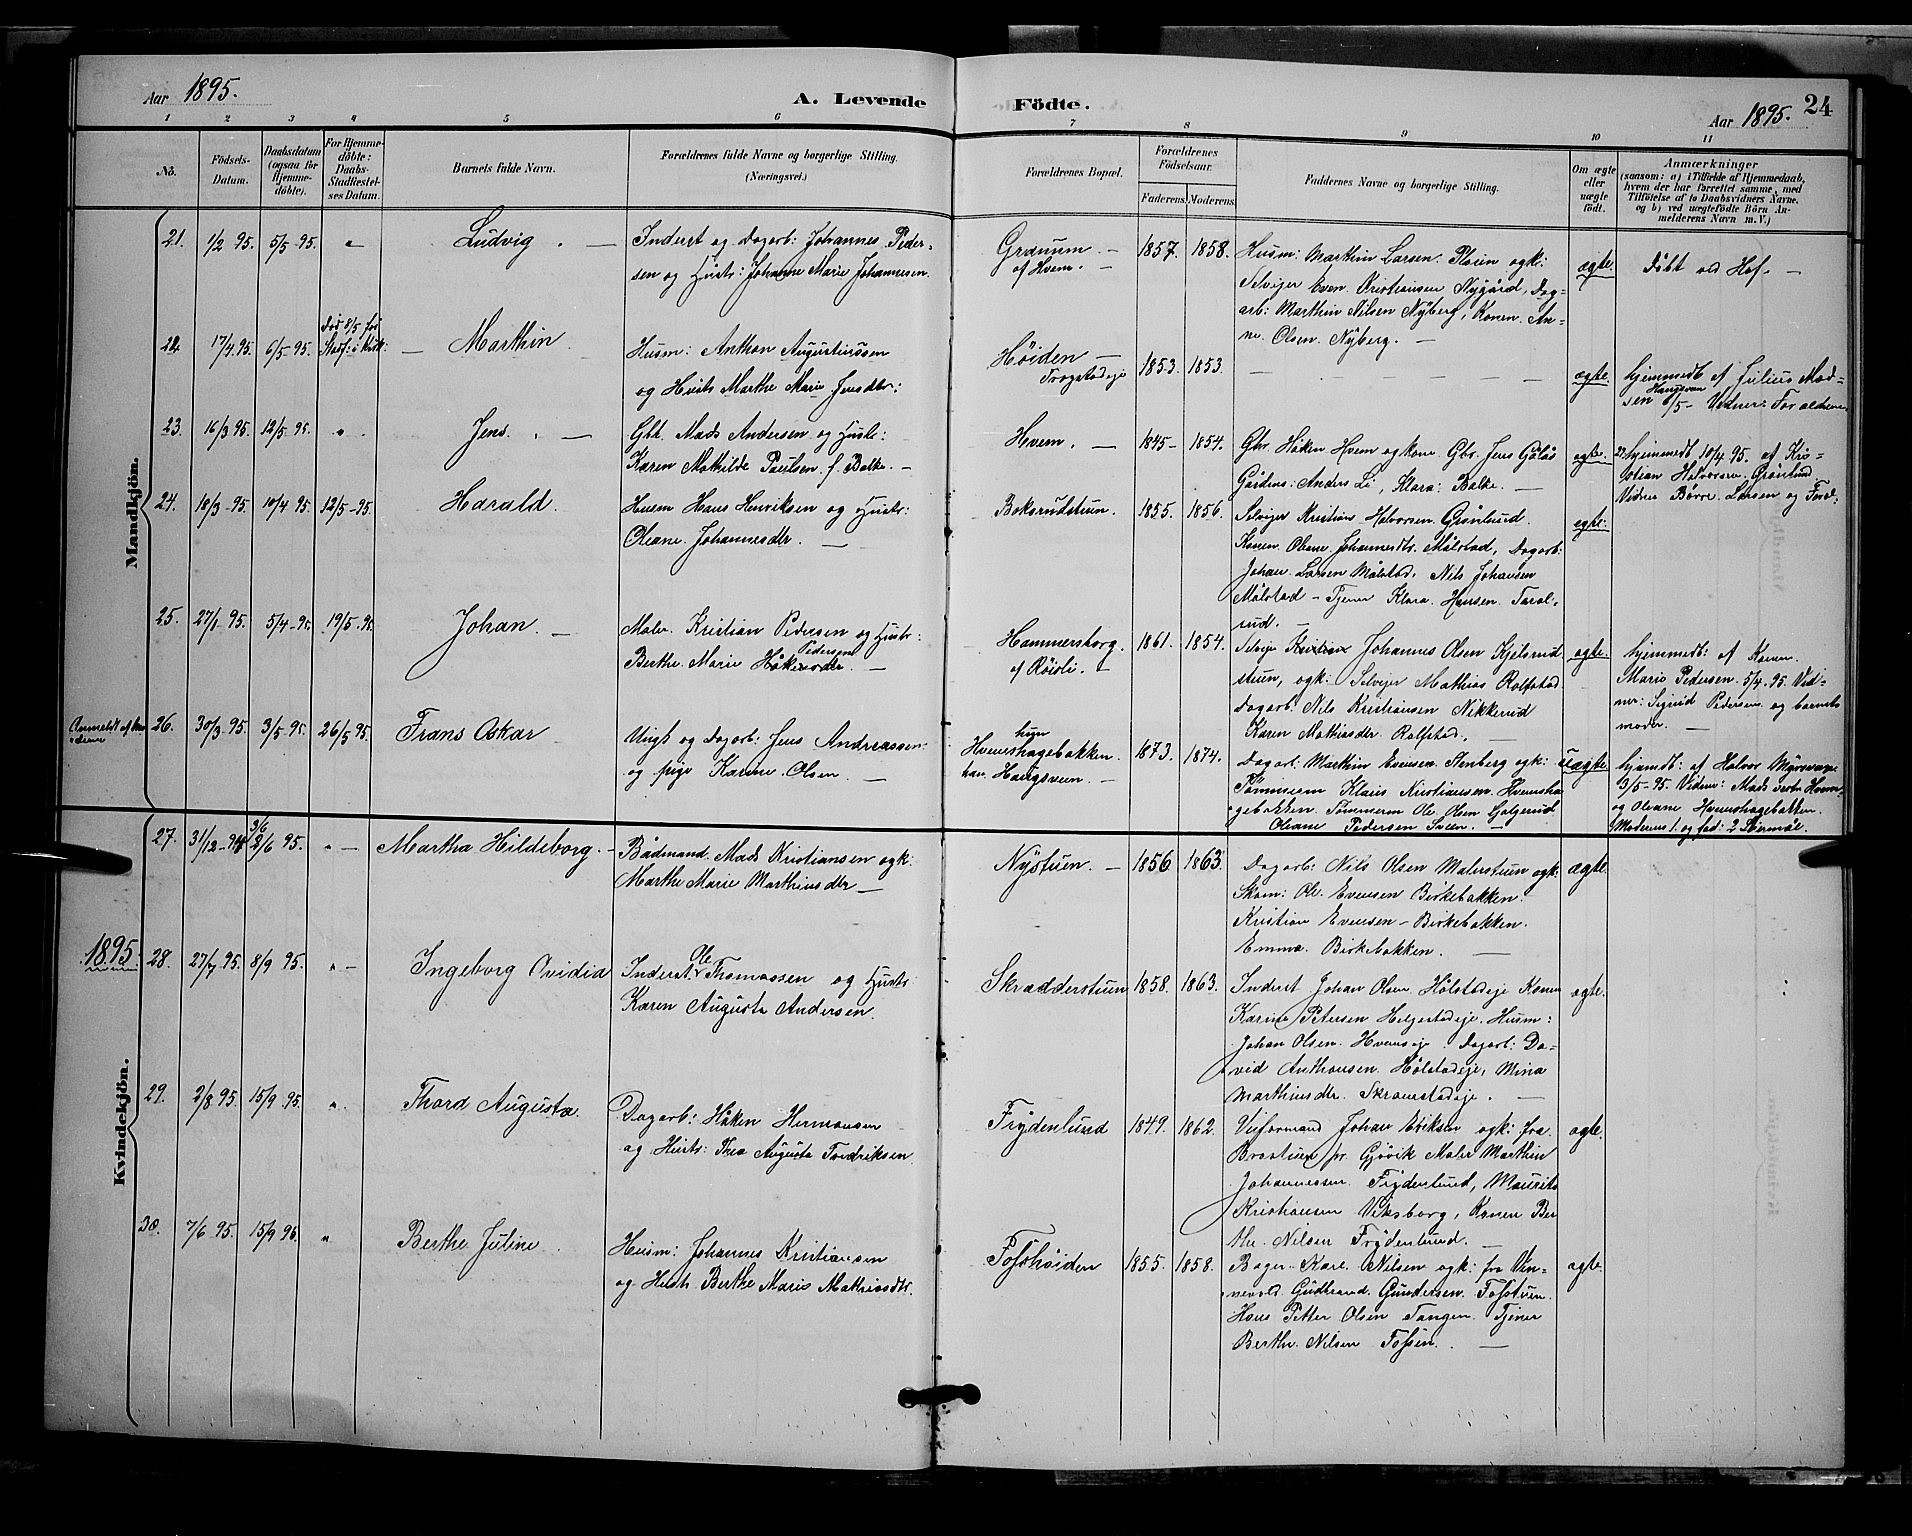 Aar 1895.
A. Levende Födte.
Aar 1895.
24
1 2 3 4 5 6 7 8 9 10 11
No.
Födsels-
Datum.
Daabsdatum
(ogsaa for
Hjemme-
döbte).
For Hjemme-
döbte:
Daabs-
Stadfæstel-
ses Datum.
Barnets fulde Navn.
Forældrenes fulde Navne og borgerlige Stilling.
(Næringsvei.)
Forældrenes Bopæl.
Forældrenes
Födselsaar.
Faderens. Moderens.
Faddernes Navne og borgerlige Stilling.
Om ægte
eller
uægte
födt.
Anmærkninger
(saasom: a) i Tilfælde af Hjemmedaab,
hvem der har forrettet samme, med
Tilföielse af to Daabsvidners Navne,
og b) ved uægtefödte Börn An-
melderens Navn m. V.)
Mandkjön.
21. 1/2 95. 5/5 95. "
Ludvig
Inderst og Dagarb: Johannes Peder-
sen og Hustr: Johanne Marie Johannesen.
Granum
af Hvem.
1857. 1858.
Husm: Marthin Larsen Plorin ogk:
Selveier Even Kristiansen Nygård, Dag-
arb: Marthin Nilsen Nyberg, Konen An-
ne Olsen Nyberg.
ægte.
Döbt ved Hof.
22 17/4 95. 6/5 95.
Marthin
Husm: Anthon Augustinssen
og Hustr Marthe Marie Jensdtr:
Höiden
Trogstadeje
1853. 1853.
ægte.
hjemmedt af Julius Mad-
sen Haugsveen 6/5 - Vidner: Forældrene
23. 16/3 95. 12/5 95. "
Jens.
Gbr. Mads Andersen og Hustr:
Karen Mathilde Paulsen f. Balke.
Hvem.
1845 1854.
Gbr. Håken Hvem og kone Gbr. Jens Gölås
Gårdens: Anders Li, Klara Balke.
ægte
24. 18/3 95. 10/4 95. 12/5 95.
Harald.
Husm Hans Henriksen og Hustr:
Oleane Johannesdtr.
Boksrudstuen.
1855. 1856.
Selveier Kristian Halvorsen Grönlund.
Konen Oleane Johannesdtr. Målstad, Dagarb:
Johan Larsen Målstad, Nils Johansen
Målstad - Tjener Klara Hansen Taral-
rud.
ægte:
hjemmedt 10/4 95. af Kri-
stian Halvorsen Grönlund
Vidner Börre Larsen og Foræl:
25. 27/1 95. 5/4 95. 19/5 95.
Johan.
Maler. Kristian Pedersen og Hustr:
Berthe Marie Håkensdtr. Pedersen
Hammersborg.
af Röisli.
1861. 1854.
Selveier Johannes Olsen Kjölsrud
stuen, ogk: Selveier Mathias Rolfstad
Dagarb: Nils Kristiansen Nikkerud
Karen Mathiasdtr. Rolfstad.
ægte.
hjemmedt: af Konen
Marie Pedersen. 5/4 95. Vid-
ner: Sigrid Pedersen og barnets
moder.
26. 30/3 95. 3/5 95. 26/5 95.
Frans Oskar
Ungk og Dagarb: Jens Andreassen:
og pige Karine Olsen.
hun
Hvemshagebakken
han Haugsveen.
1873. 1874.
Dagarb: Marthin Evensen Stenberg ogk:
Tömmerm Klaus Kristiansen Hvemsha-
gebakken. Tömmerm Ole Olsen Galgerud.
Oleane Pedersen Sveen.
Uægte.
hjemdt: af Halvor Myrsveen
3/5-95. Vidner: Mads Hvem
og Oleane Hvemshagebakken
Moderens 1. og fad: 2 Leiermål.
Kvindekjön.
27. 31/12 94 3/6 2/6 95. "
Martha Hildeborg.
Bådmand. Mads Kristiansen ogk:
Marthe Marie Marthinsdtr
Nystuen.
1856 1863.
Dagarb: Nils Olsen Malerstuen ogk:
Skom: Ole Evensen Birkebakken.
Kristian Evensen Birkebakken.
Emma Birkebakken.
ægte.
1895.
28. 27/7 95. 8/9 95. "
Ingeborg Ovidia
Inderst. Ole Thomassen og Hustr
Karen Augusta Andersen.
Skrædderstuen
1858. 1863.
Inderst Johan Olsen Hölstadeje Konen
Karine Petersen Helgestadeje. Husm:
Johan Olsen Hvemseje. Dagarb: Da-
vid Anthonsen. Hölstadeje, Mina
Marthinsdtr. Skrauestadeje.
ægte.
29. 2/8 95. 15/9 95. "
Thora Augusta
Dagarb: Håken Hermansen
og Hustr: Thea Augusta Fredriksen.
Frydenlund
1849. 1862.
Veiformand Johan Eriksen ogk: fra
Brastuen pr. Gjövik Maler Marthin
Johannessen Frydenlund, Maurits
Kristiansen Viksborg, Konen Ber
the Nilsen Frydenlund.
ægte.
30. 7/6 95. 15/9 95. "
Berthe Juline
Husm: Johannes Kristiansen
og Hustr Berthe Marie Mathiasdtr.
Fosshöiden
1855. 1858.
Bager Karl Nilsen ogk: fra Vin-
nevold Gudbrand Gundersen Fosstuen.
Hans Petter Olsen Tangen Tjener
Berthe Nilsen Fossen.
ægte.